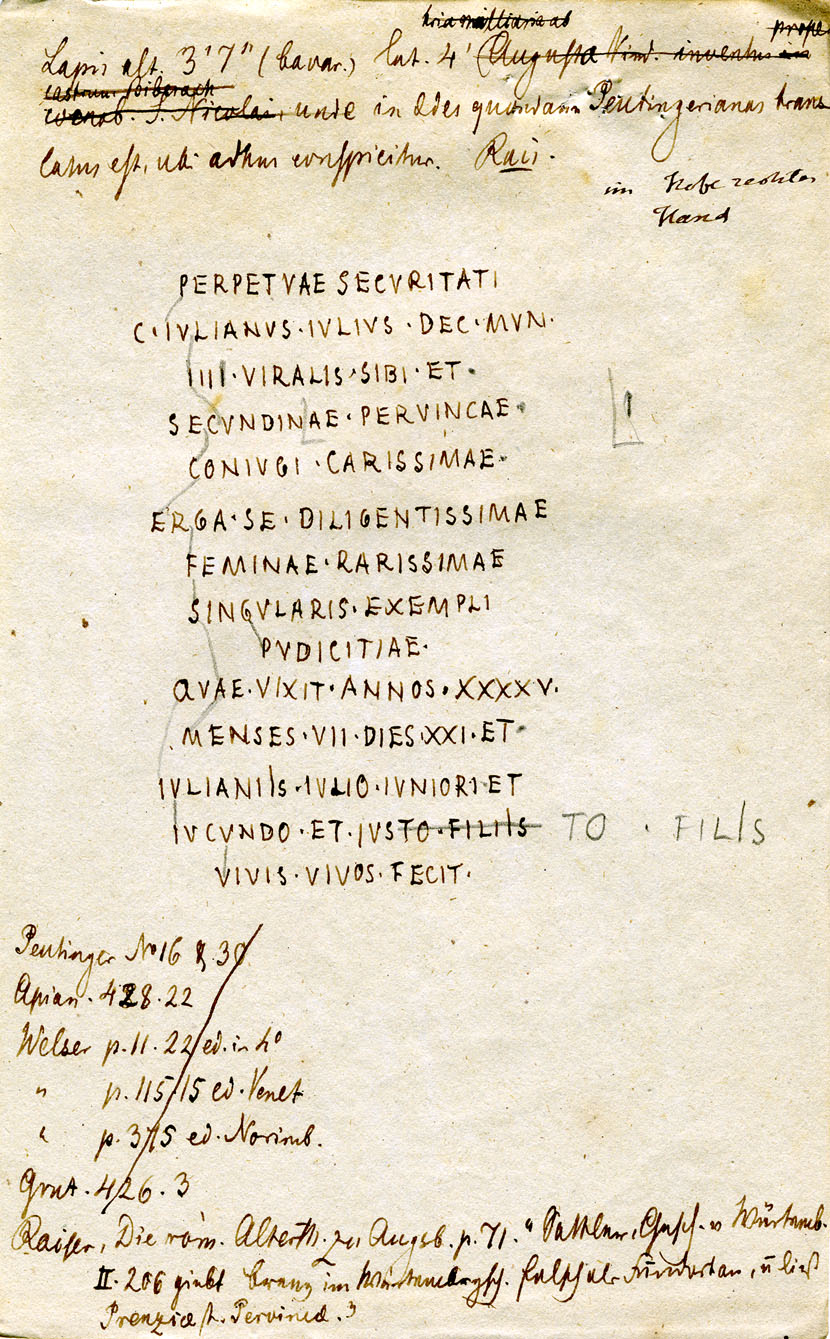 tria milliaria ab
Lapis alt. 3' 7" (bavar.) lat. 4' (Augusta Vind. inventus prope
castrum Biberach
coenob. S. Nicolai, unde in ædes quondam Peutingerianas trans
latus est, ubi adhuc conspicitur. Rais.
im Hofe rechter
Hand
PERPETVAE SECVRITATI
C·IVLIANVS·IVLIVS·DEC·MVN·
IIII·VIRALIS·SIBI·ET·
SECVNDINAE·PERVINCAE·
CONIVGI·CARISSIMAE·
ERGA·SE·DILIGENTISSIMAE
FEMINAE·RARISSIMAE
SINGVLARIS·EXEMPLI
PVDICITIAE·
QVAE·VIXIT·ANNOS·XXXXV·
MENSES·VII·DIES·XXI·ET
IVLIANIIS·IVLIO·IVNIORI·ET
IVCVNDO·ET·IVSTO·FILIIS TO · FILIS
VIVIS·VIVOS·FECIT·
Peutinger No 16 & 30
Apian. 428.22
Welser p. 11. 22 ed. in 4o
" p. 115/15 ed. Venet
" p. 3/15 ed. Norimb.
Grut. 426. 3
Raiser, Die röm. Alterth. zu Augsb. p. 71. "Sattler, Gesch. v Würtemb.
II. 206 giebt Brenz im Würtembergsch. falsch als Fundort an, u ließt
Prenziæ st. Pervincæ."